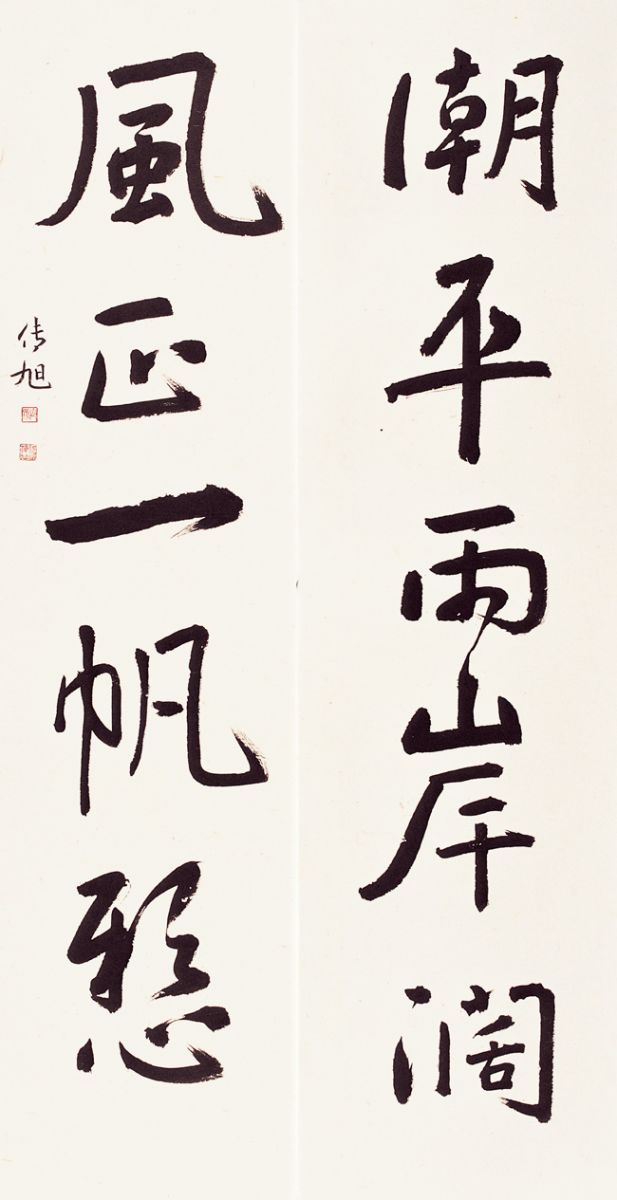 潮平兩岸闊
風正一帆懸
传旭